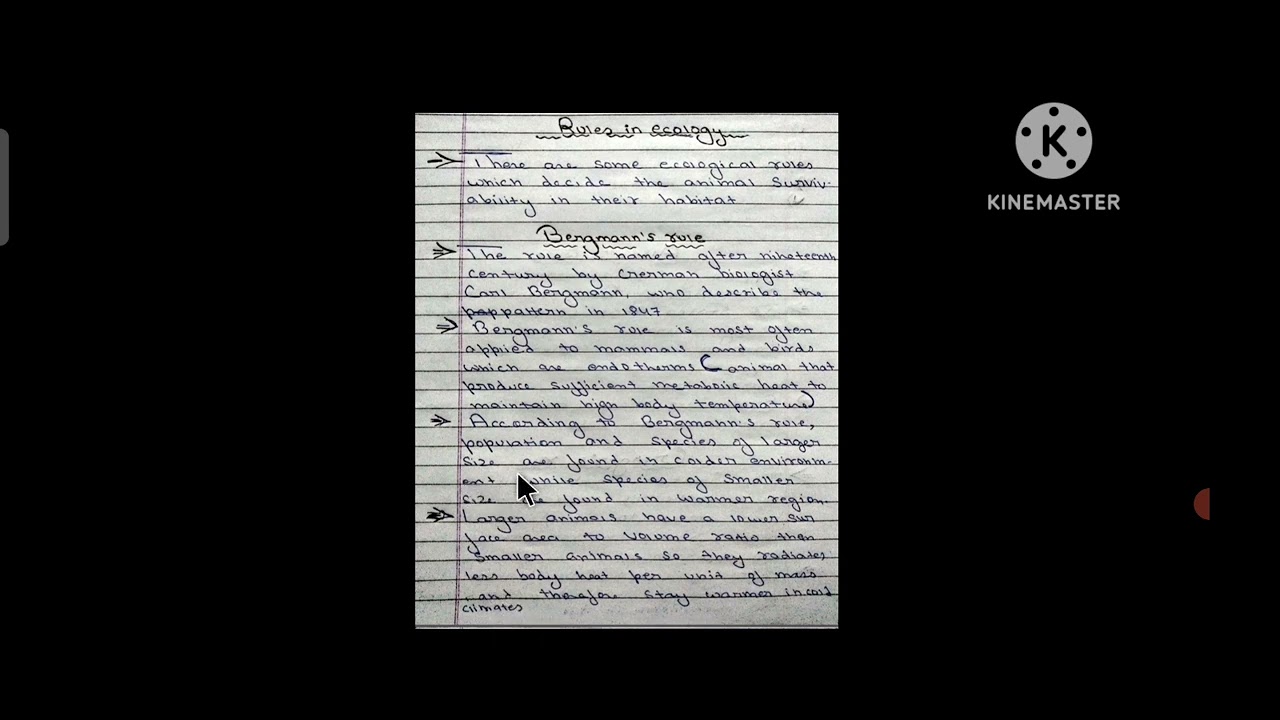 Rules in ecology
There are some ecological rules
which decide the animal surviv-
ability in their habitat
Bergmann's rule
The rule is named after nineteenth
century by German biologist
Carl Bergmann, who describe the
pattern in 1847
Bergmann's rule is most often
applied to mammals and birds
which are endotherms (animal that
produce sufficient metabolic heat to
maintain high body temperature)
According to Bergmann's rule,
population and species of larger
size are found in colder environm-
ent while species of smaller
size found in warmer region.
Larger animals have a lower sur
face area to volume ratio than
smaller animals so they radiates
less body heat per unit of mass
and therefore stay warmer in cold
climates
KINEMASTER